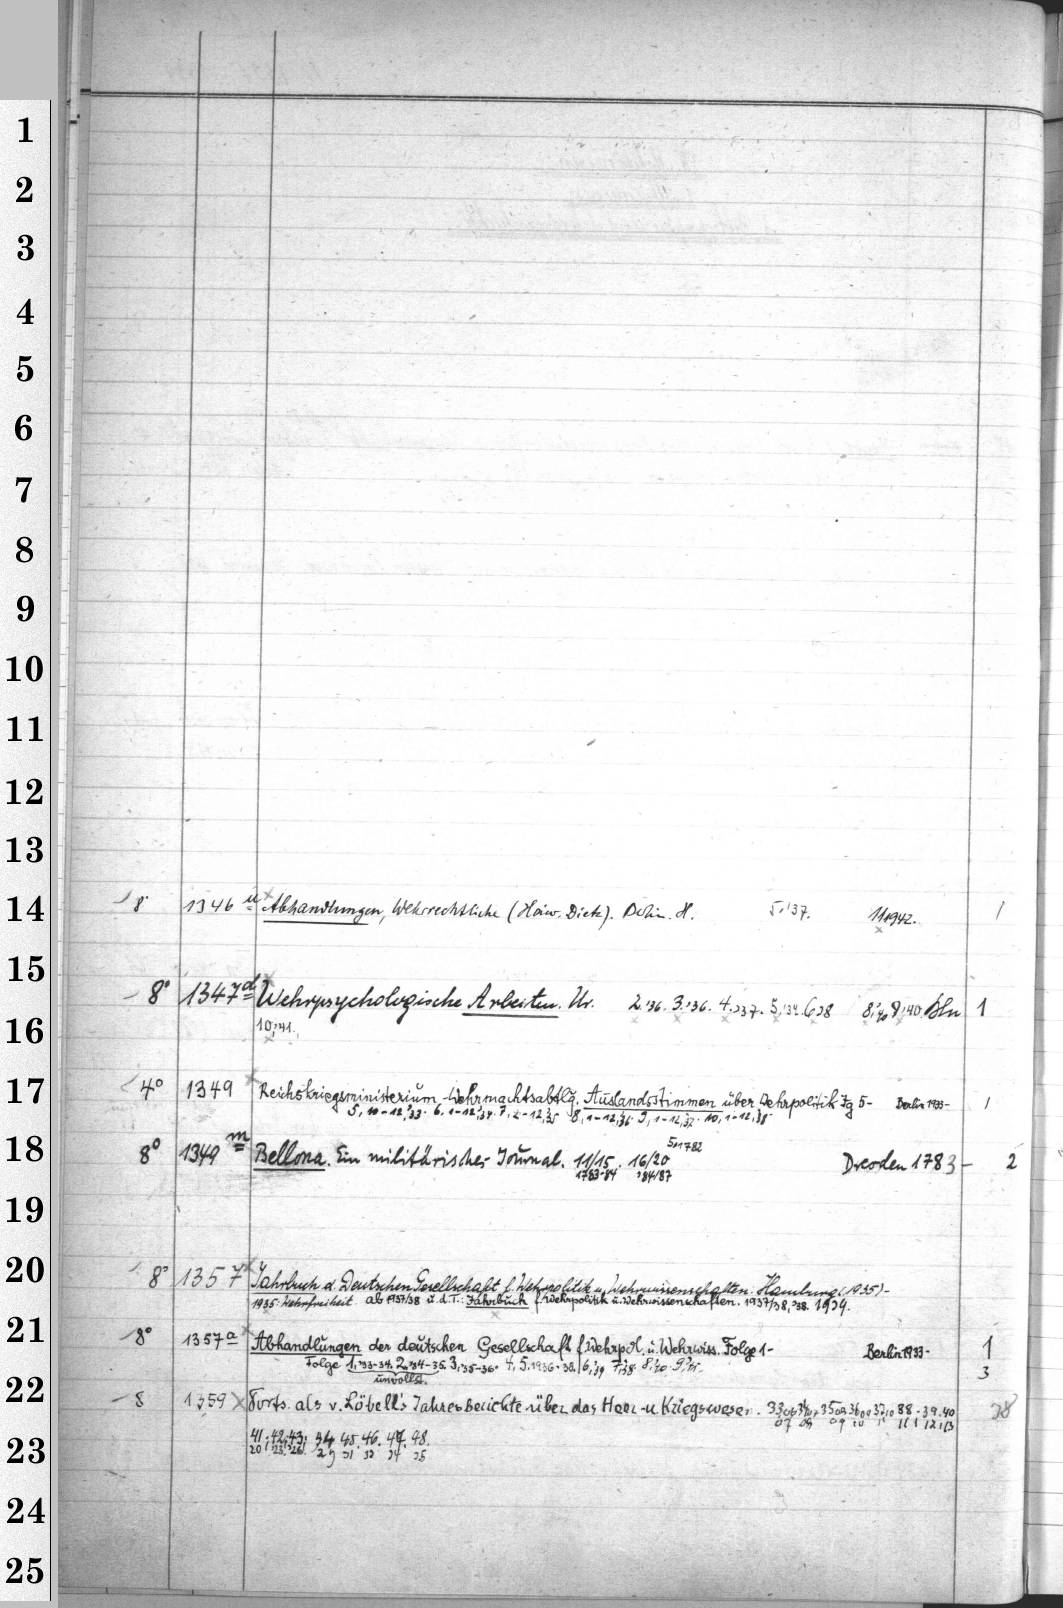 1
2
3
4
5
6
7
8
9
10
11
12
13
14
15
16
17
18
19
20
21
22
23
24
25
8° 1346 Abhandlungen, Wehrrechtliche (Heinr. Dietz). Berlin. 8. 5,'37. 11,1942. 1
8° 1347d Wehrpsychologische Arbeiten. Nr. 2,'36. 3,'36. 4,'37. 5, 6,'38 8,'40 9,'40. Bln 1
10,'41.
4° 1349 Reichskriegsministerium, Wehrmachtsabtlg. Auslandsstimmen über Wehrpolitik Jg 5- Berlin 1933- 1
5, 10-12,'33. 6, 1-12,'34. 7, 2-12,'35 8, 1-12,'36. 9, 1-12,'37. 10, 1-12,'38.
5,1782
8° 1349m Bellona. Ein militärisches Journal. 11/15. 16/20 Dresden 1783- 2
1783-84 '84/87
8° 1357 Jahrbuch d. Deutschen Gesellschaft f. Wehrpolitik u. Wehrwissenschaften. Hamburg (1935)-
1935: Wehrfreiheit ab 1937/38 u. d. T.: Jahrbuch f. Wehrpolitik u. Wehrwissenschaften. 1937/38, '38. 1939.
8° 1357a Abhandlungen der deutschen Gesellschaft f. Wehrpol. u. Wehrwiss. Folge 1- Berlin 1933- 1
Folge 1,'33-34. 2,'34-35. 3,'35-36. 4, 5, 1936-38. 6,'39 7,'38 8,'40. 3
unvollst.
8 1359 Forts. als v. Löbell's Jahresberichte über das Heer- u. Kriegswesen. 33,06 34,07 35,08 36,09 37,10 38. 39. 40 38
07 08 09 10 11 11 12 13
41; 42; 43; 44 45. 46. 47. 48.
20 29 31 32 34 35